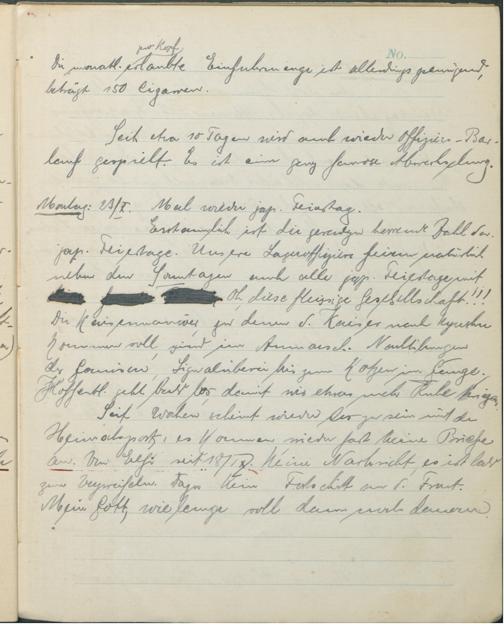 No.
pro Kopf
Die monatl. erlaubte Einfuhrmenge ist allerdings genügend,
beträgt 150 Cigarren.
Seit etwa 10 Tagen wird auch wieder Offiziers-Bar-
lauf gespielt. Es ist eine ganz famose Abwechslung.
Montag: 23/X. Mal wieder jap. Feiertag.
Erstaunlich ist die geradezu horrende Zahl der
jap. Feiertage. Unsere Lageroffiziere feiern natürlich
neben den Sonntagen auch alle jap. Feiertage mit
Oh, diese fleissige Gesellschaft!!!
Die Kaisermanöver, zu denen d. Kaiser nach Kyushu
kommen soll, sind im Anmarsch. Nachtübungen
der Garnison, Signalüberei bis zum Kotzen im Gange.
Hoffentl. geht bald los damit wir etwas mehr Ruhe kriegen
Seit Wochen scheint wieder los zu sein mit der
Heimatspost, es kommen wieder fast keine Briefe
an. Von seit 18/IX. keine Nachricht, es ist bald
zum Verzweifeln. Dazu kein Fortschritt an d. Front.
Mein Gott, wie lange soll denn noch dauern